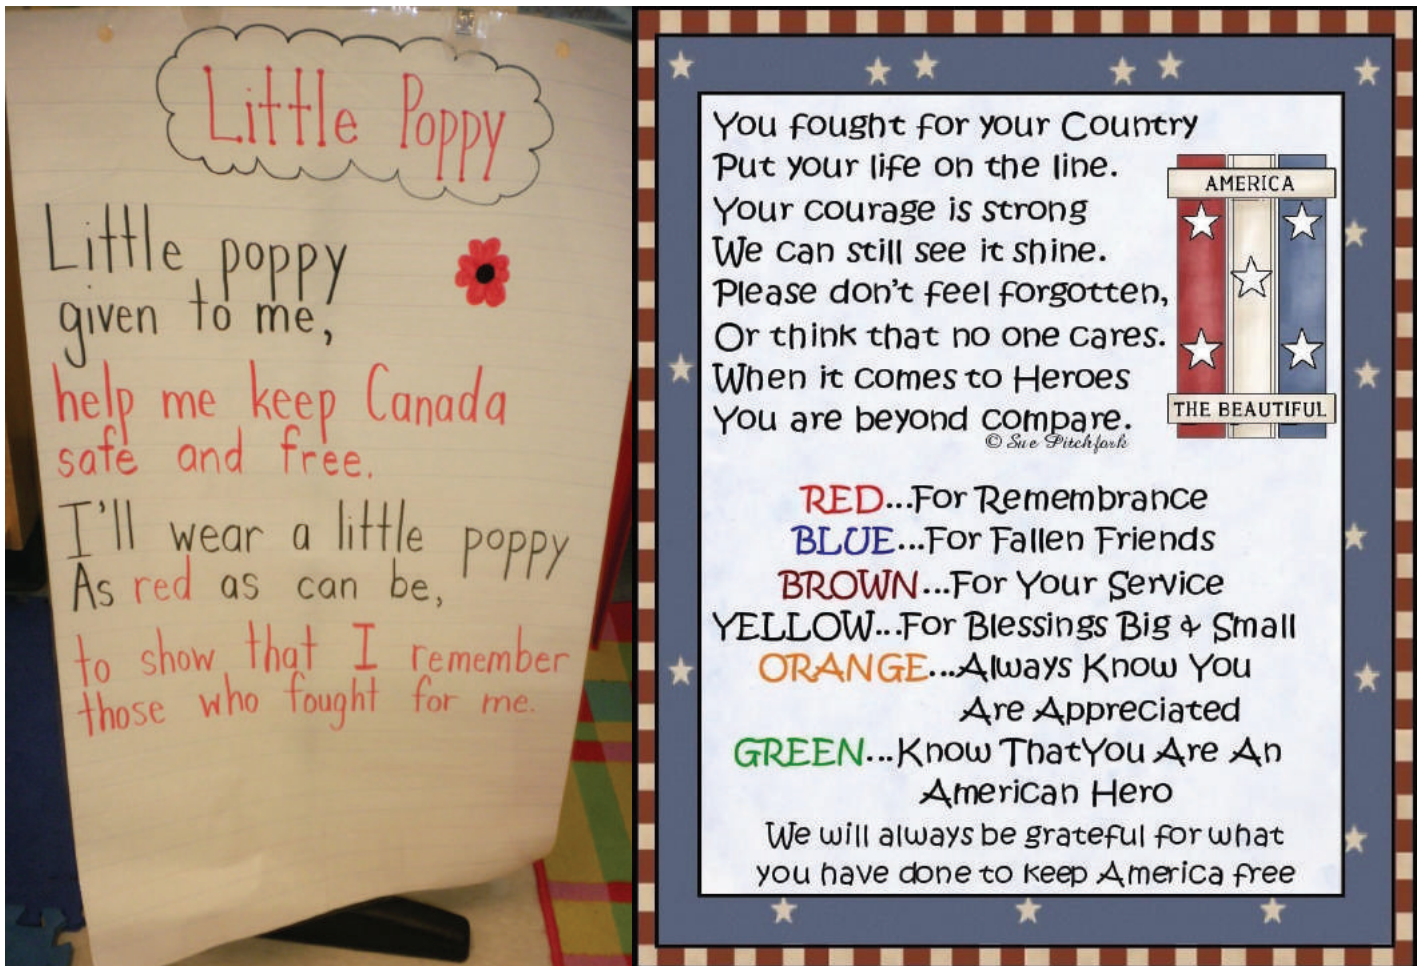 Little Poppy
Little poppy
given to me,
help me keep Canada
safe and free.
I'll wear a little poppy
As red as can be,
to show that I remember
those who fought for me.
You fought for your Country
Put your life on the line.
Your courage is strong
We can still see it shine.
Please don't feel forgotten,
Or think that no one cares.
When it comes to Heroes
You are beyond compare.
© Sue Pitchfork
AMERICA
THE BEAUTIFUL
RED...For Remembrance
BLUE...For Fallen Friends
BROWN...For Your Service
YELLOW...For Blessings Big & Small
ORANGE...Always Know You
Are Appreciated
GREEN...Know ThatYou Are An
American Hero
We will always be grateful for what
you have done to keep America free